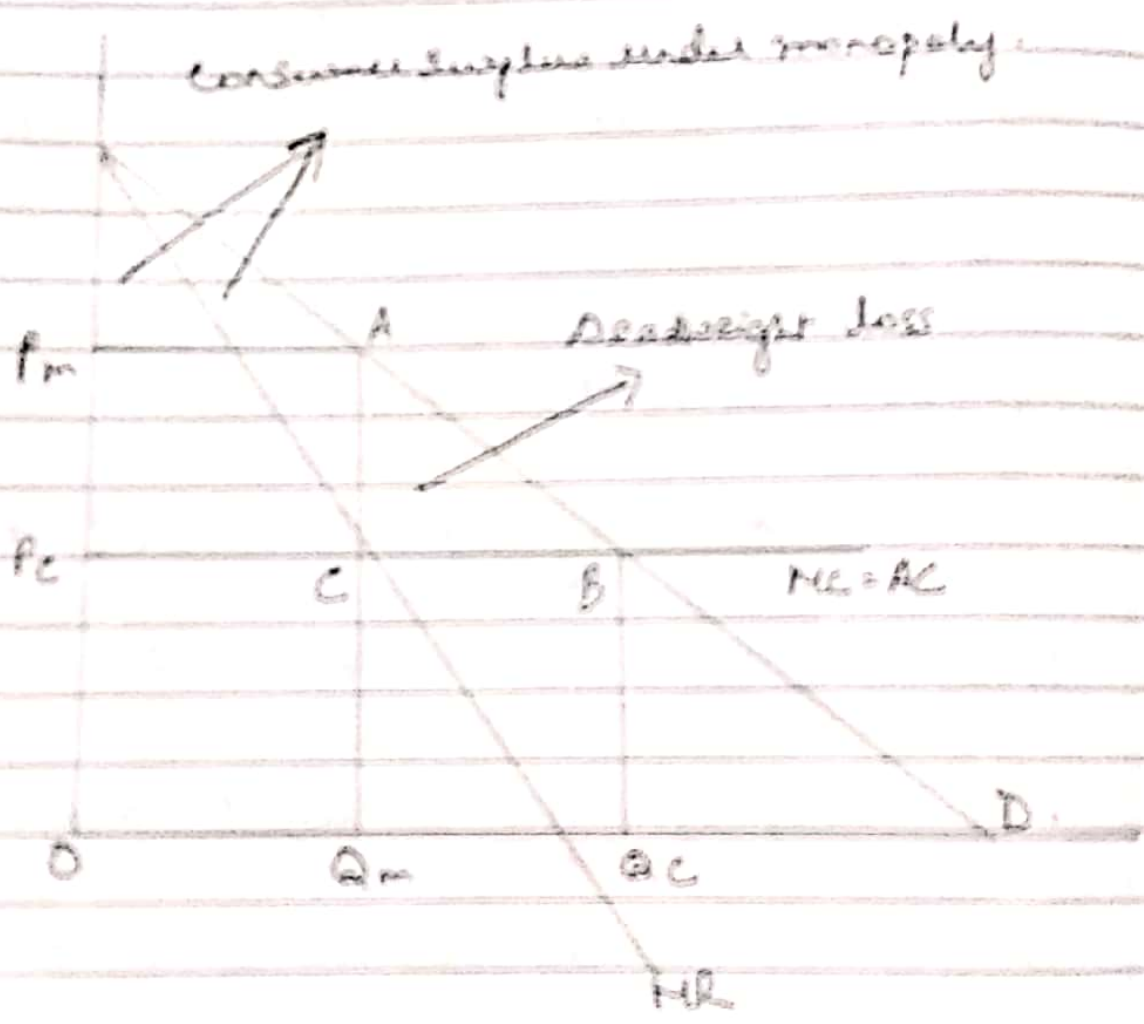 Consumer Surplus under monopoly.
A
Deadweight loss
Pm
Pc
C
B
MC = AC
D
O
Qm
QC
MR